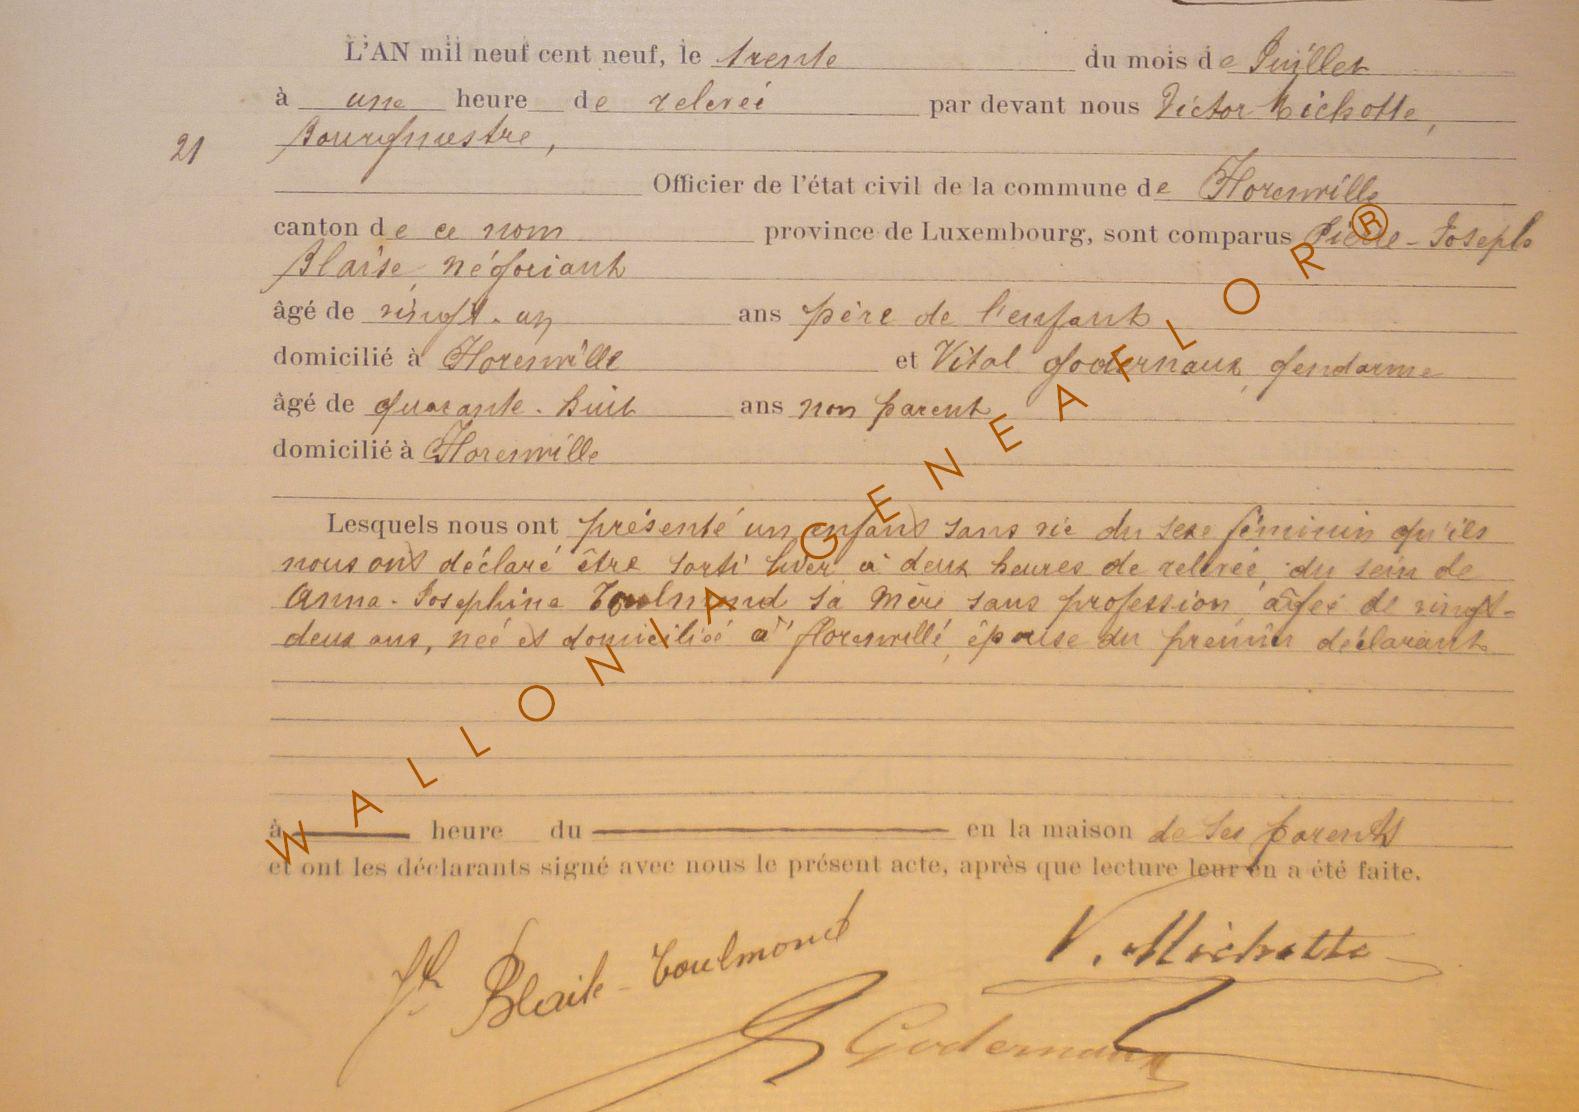 L'AN mil neuf cent neuf, le trente du mois de Juillet
à une heure de relevée par devant nous Victor Michotte,
21
Bourgmestre,
Officier de l'état civil de la commune de Florenville
canton de ce nom province de Luxembourg, sont comparus Pierre-Joseph
Blaise, négociant
âgé de vingt-un ans père de l'enfant
domicilié à Florenville et Vital Godernaux, gendarme
âgé de quarante-huit ans non parent
domicilié à Florenville
Lesquels nous ont présenté un enfant sans vie du sexe féminin qu'ils
nous ont déclaré être sorti hier à deux heures de relevée, du sein de
Anna-Josephine Toulmond sa mère sans profession âgée de vingt-
deux ans, née et domiciliée à Florenville, épouse du premier déclarant
à heure du en la maison de ses parents
et ont les déclarants signé avec nous le présent acte, après que lecture leur en a été faite.
Jh Blaise-Toulmond
V. Michotte
Godernaux
WALLONIA GENEAFLOR®